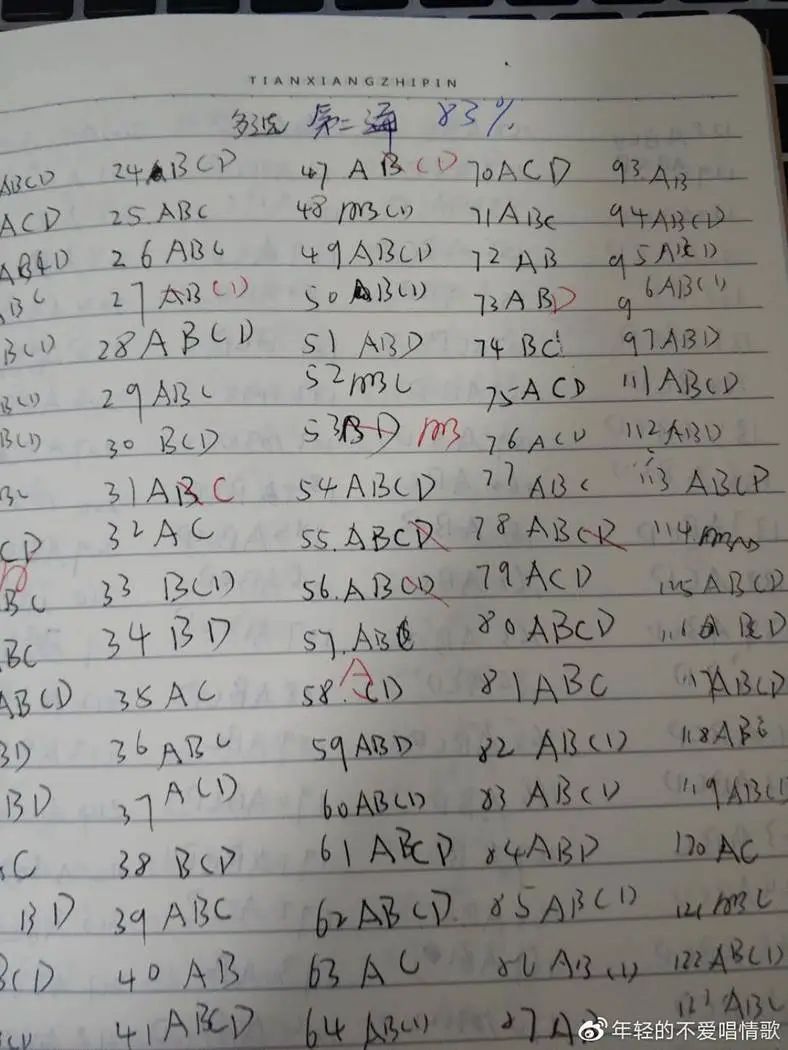 TIANXIANGZHIPIN
多选 第二遍 83%
ABCD 24 ABCD 47 ABCD 70 ACD 93 AB
ACD 25. ABC 48 ABCD 71 ABC 94 ABCD
ABCD 26 ABC 49 ABCD 72 AB 95 ABCD
ABC 27 ABCD 50 ABCD 73 ABD 96 ABCD
BCD 28 ABCD 51 ABD 74 BC 97 ABD
BCD 29 ABC 52 ABC 75 ACD 111 ABCD
BCD 30 BCD 53 ABD AB 76 ACD 112 ABD
BC 31 ABC 54 ABCD 77 ABC 113 ABCD
CD 32 AC 55. ABCD 78 ABCD 114
BC 33 BCD 56. ABCD 79 ACD 115 ABCD
BC 34 BD 57. ABC 80 ABCD 116 ABCD
ABCD 35 AC 58. ACD 81 ABC 117 ABCD
BD 36 ABC 59 ABD 82 ABCD 118 ABC
BD 37 ACD 60 ABCD 83 ABCD 119 ABCD
C 38 BCD 61 ABCD 84 ABD 120 AC
BD 39 ABC 62 ABCD 85 ABCD 121 ABC
BCD 40 AB 63 AC 86 ABCD 122 ABCD
BCD 41 ABCD 64 ABCD 87 AB 123 ABC
@年轻的不爱唱情歌